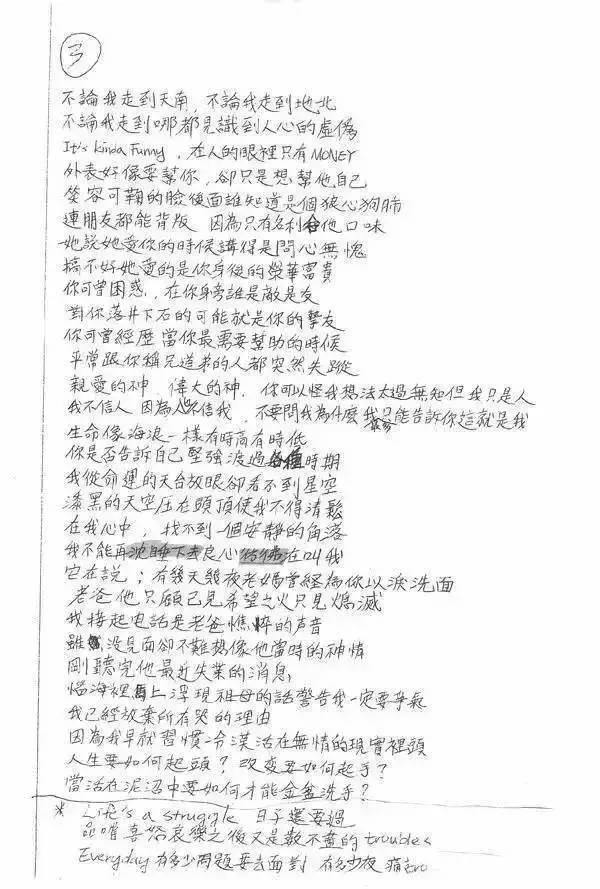 3
不論我走到天南，不論我走到地北
不論我走到哪都見識到人心的虛偽
It's kinda Funny，在人的眼裡只有MONEY
外表好像要幫你，卻只是想幫他自己
笑容可鞠的臉後面誰知道是個狼心狗肺
連朋友都能背版 因為只有名利合他口味
她說她愛你的時候講得是問心無愧
搞不好她愛的是你身後的榮華富貴
你可曾困惑，在你身旁誰是敵是友
對你落井下石的可能就是你的摯友
你可曾經歷當你最需要幫助的時候
平常跟你稱兄道弟的人都突然失蹤
親愛的神，偉大的神，你可以怪我想法太過無知但我只是人
我不信人 因為人不信我，不要問我為什麼我只能告訴你這就是我
生命像海浪一樣有時高有時低
你是否告訴自己堅強渡過各種時期
我從命運的天台放眼卻看不到星空
漆黑的天空压在頭頂使我不得清鬆
在我心中，找不到一個安靜的角落
我不能再沈睡下去良心彷彿在叫我
它在説；有幾天幾夜老媽曾経為你以淚洗面
老爸他只顧己見希望之火只見熄滅
我接起電話是老爸憔悴的声音
雖沒見面卻不難想像他當時的神情
剛聽完他最近失業的消息
惱海裡馬上浮現祖母的話警告我一定要爭氣
我已經放棄所有哭的理由
因為我早就習慣一令漠活在無情的現實裡頭
人生要如何起頭？改变要如何起手？
當活在泥沼中要如何才能金盆洗手？
* Life's a struggle 日子還要過
品嚐喜怒哀樂之後又是數不盡的troubles
Everyday 有多少問題要去面對 有多少夜 痛